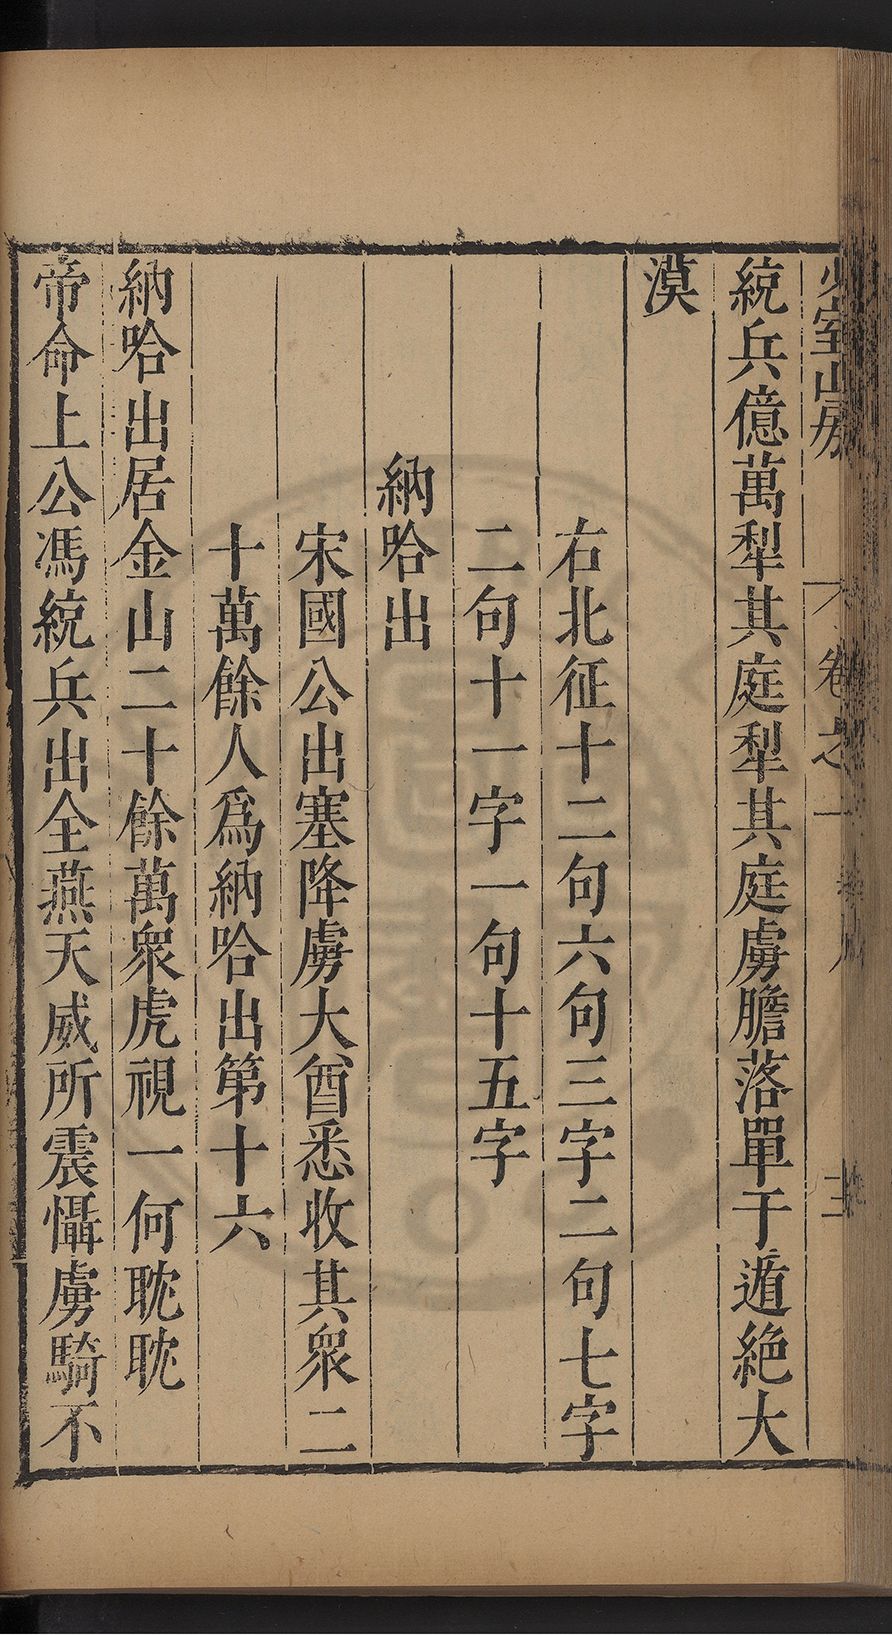 統兵億萬犁其庭犁其庭虜膽落單于遁絶大
漠
右北征十二句六句三字二句七字
二句十一字一句十五字
納哈出
宋國公出塞降虜大酋悉收其衆二
十萬餘人爲納哈出第十六
納哈出居金山二十餘萬衆虎視一何耽耽
帝命上公馮統兵出全燕天威所震懾虜騎不